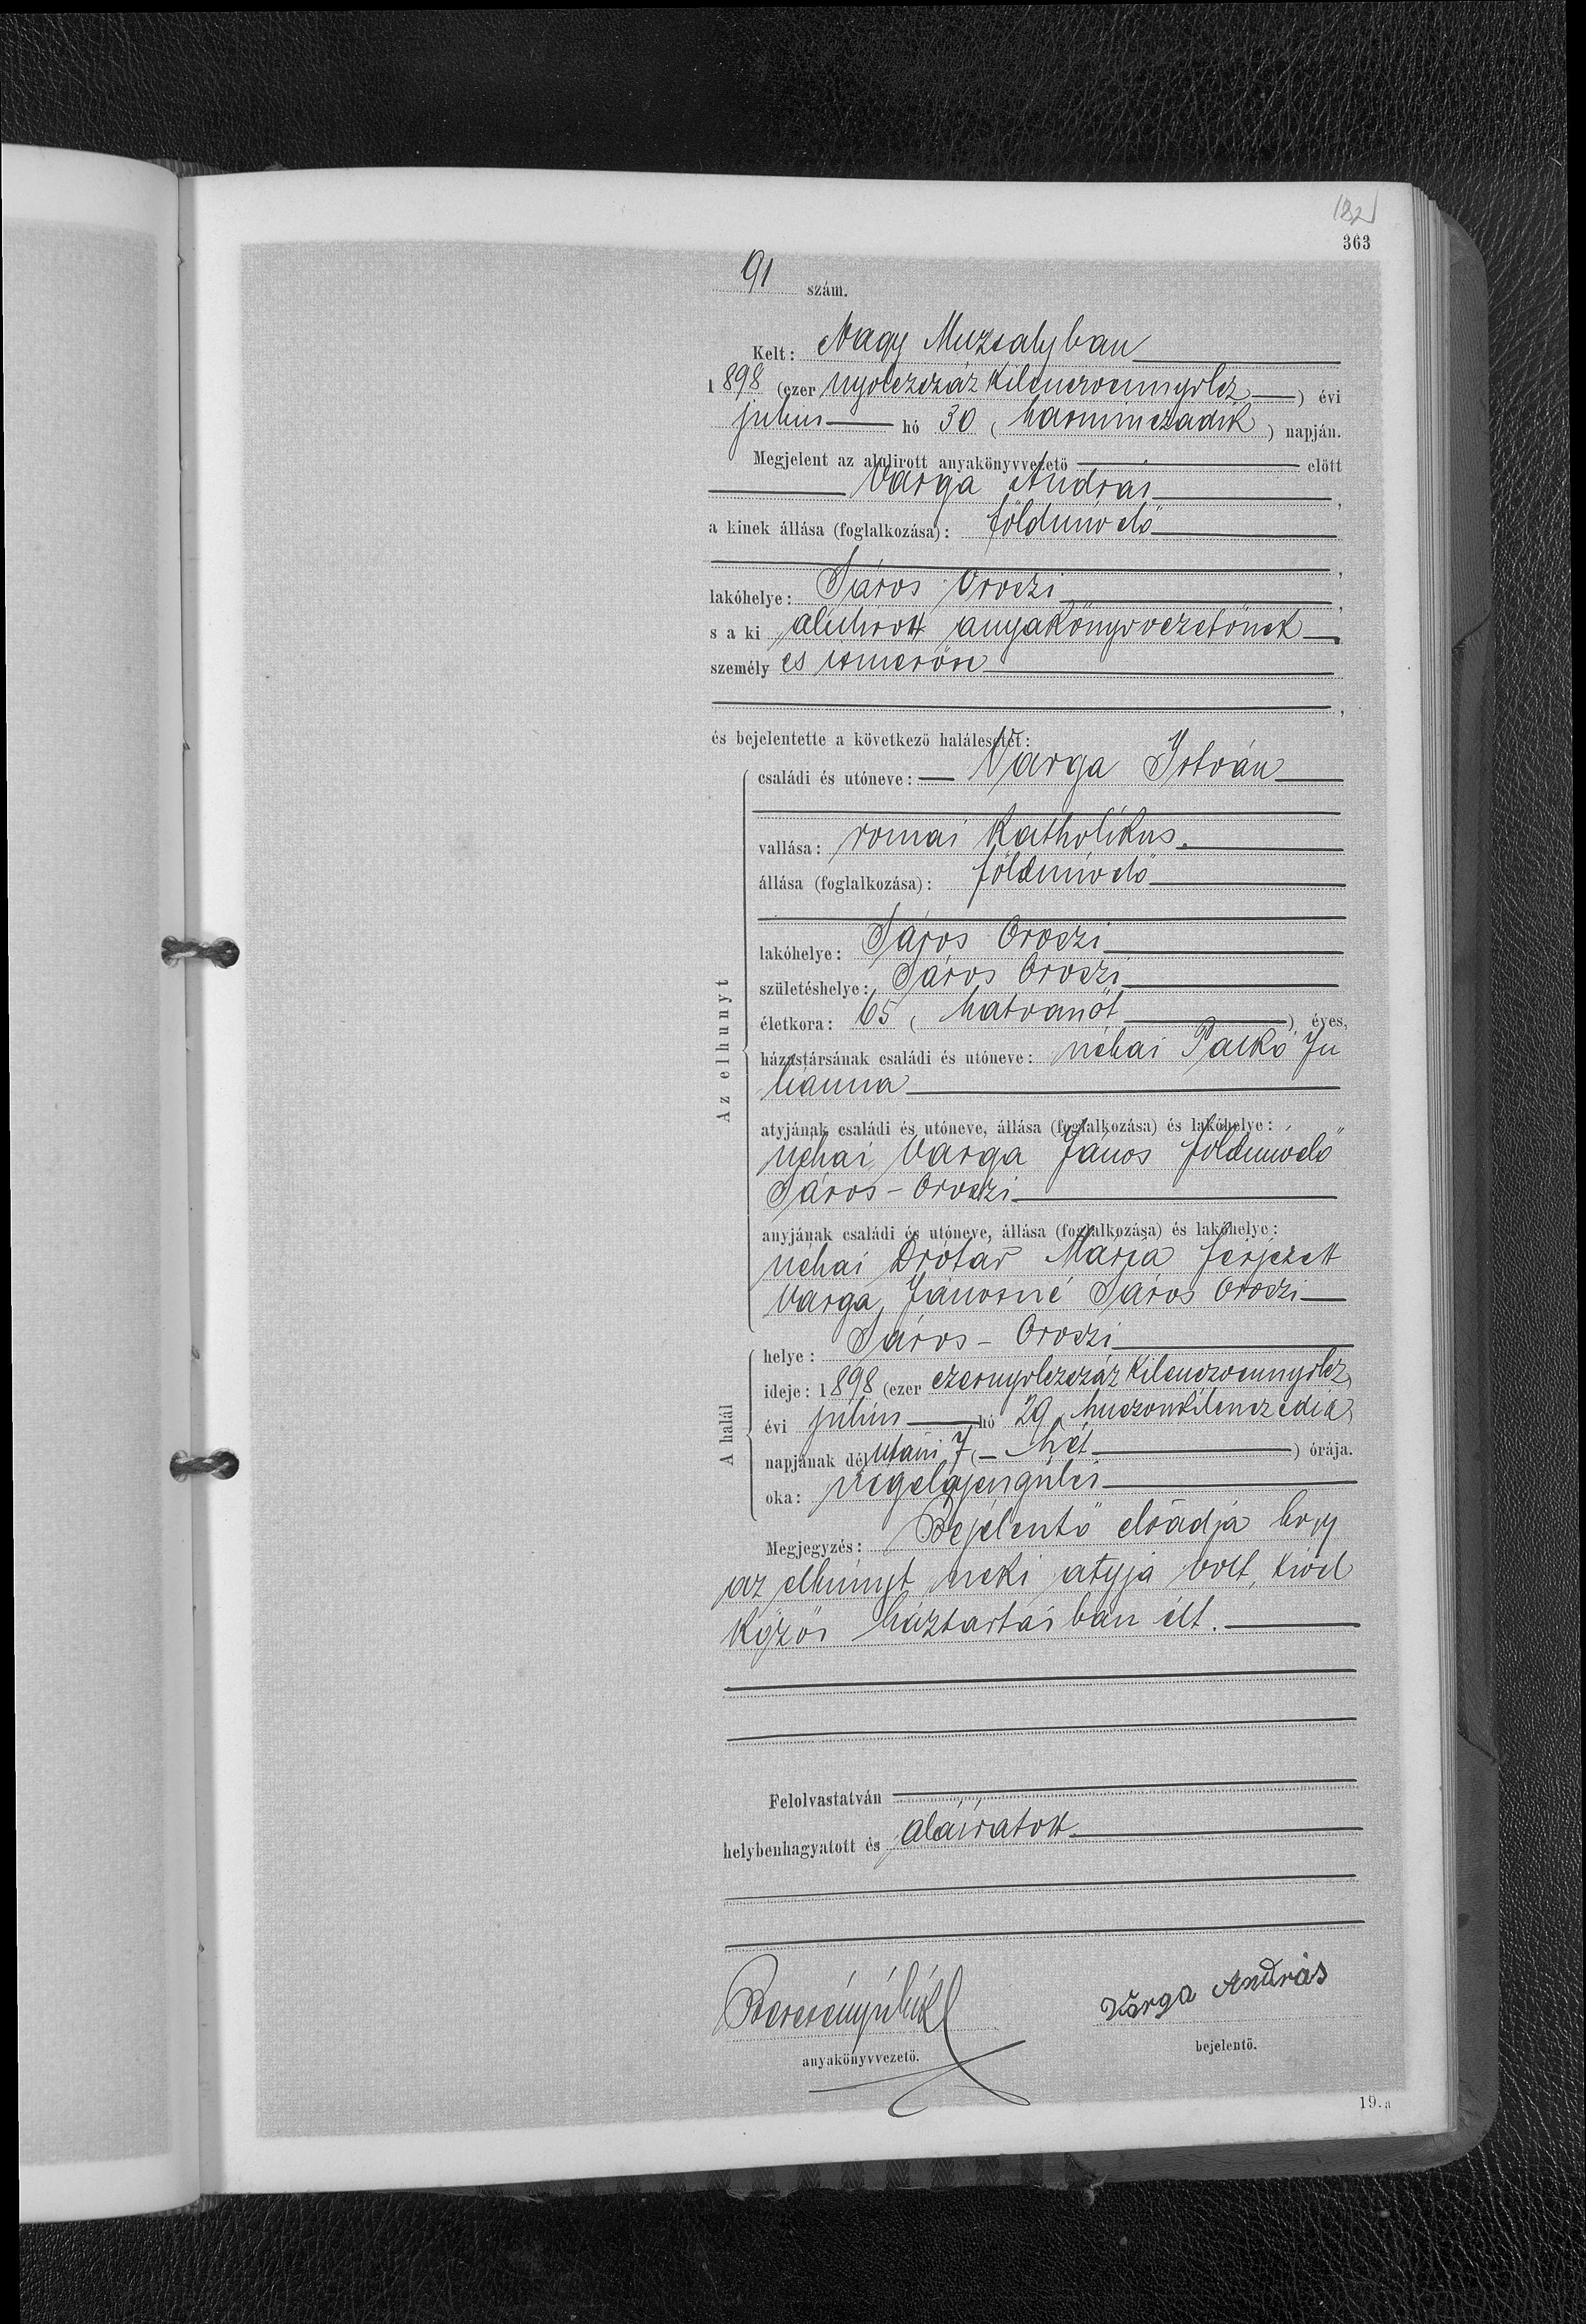 182
363
91 szám.
Kelt: Nagy Muzsalyban
1898 (ezer nyolczszáz kilenczvennyolcz) évi
julius hó 30 (harminczadik) napján.
Megjelent az alulirott anyakönyvvezető előtt
Varga András,
a kinek állása (foglalkozása): földmivelő
,
lakóhelye: Sáros Oroszi,
s a ki alulirott anyakönyvvezetőnek
személyes ismerőse
,
és bejelentette a következő halálesetet:
Az elhunyt
családi és utóneve: Varga István
vallása: romai katholikus.
állása (foglalkozása): földmivelő
lakóhelye: Sáros Oroszi
születéshelye: Sáros Oroszi
életkora: 65 (hatvanöt) éves,
házastársának családi és utóneve: néhai Palkó Ju
hanna
atyjának családi és utóneve, állása (foglalkozása) és lakóhelye:
néhai Varga János földmivelő
Sáros-Oroszi
anyjának családi és utóneve, állása (foglalkozása) és lakóhelye:
néhai Drótar Mária férjezett
Varga Jánosné Sáros Oroszi
A halál
helye: Sáros-Oroszi
ideje: 1898 (ezer ezernyolczszáz kilenczvennyolcz)
évi julius hó 29 (huszonkilenczedik)
napjának délutáni 7 (hét) órája.
oka: végelgyengülés
Megjegyzés: Bejelentő előadja hogy
az elhunyt neki atyja volt, kivel
közös háztartásban élt.
Felolvastatván
helybenhagyatott és aláiratott
Varga András
anyakönyvvezető.
bejelentő.
19.a